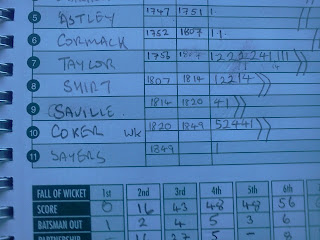 5 ASTLEY 1747 1751 1.
6 CORMACK 1752 1807 1.1.
7 TAYLOR 1756
8 SHIRT 1807 1814 12214
9 SAVILLE 1814 1820 41
10 COKER wk 1820 1849 52441
11 SAYERS 1849 1
FALL OF WICKET 1st 2nd 3rd 4th 5th 6th
SCORE 0 16 43 48 48 56
BATSMAN OUT 1 2 4 5 3 6